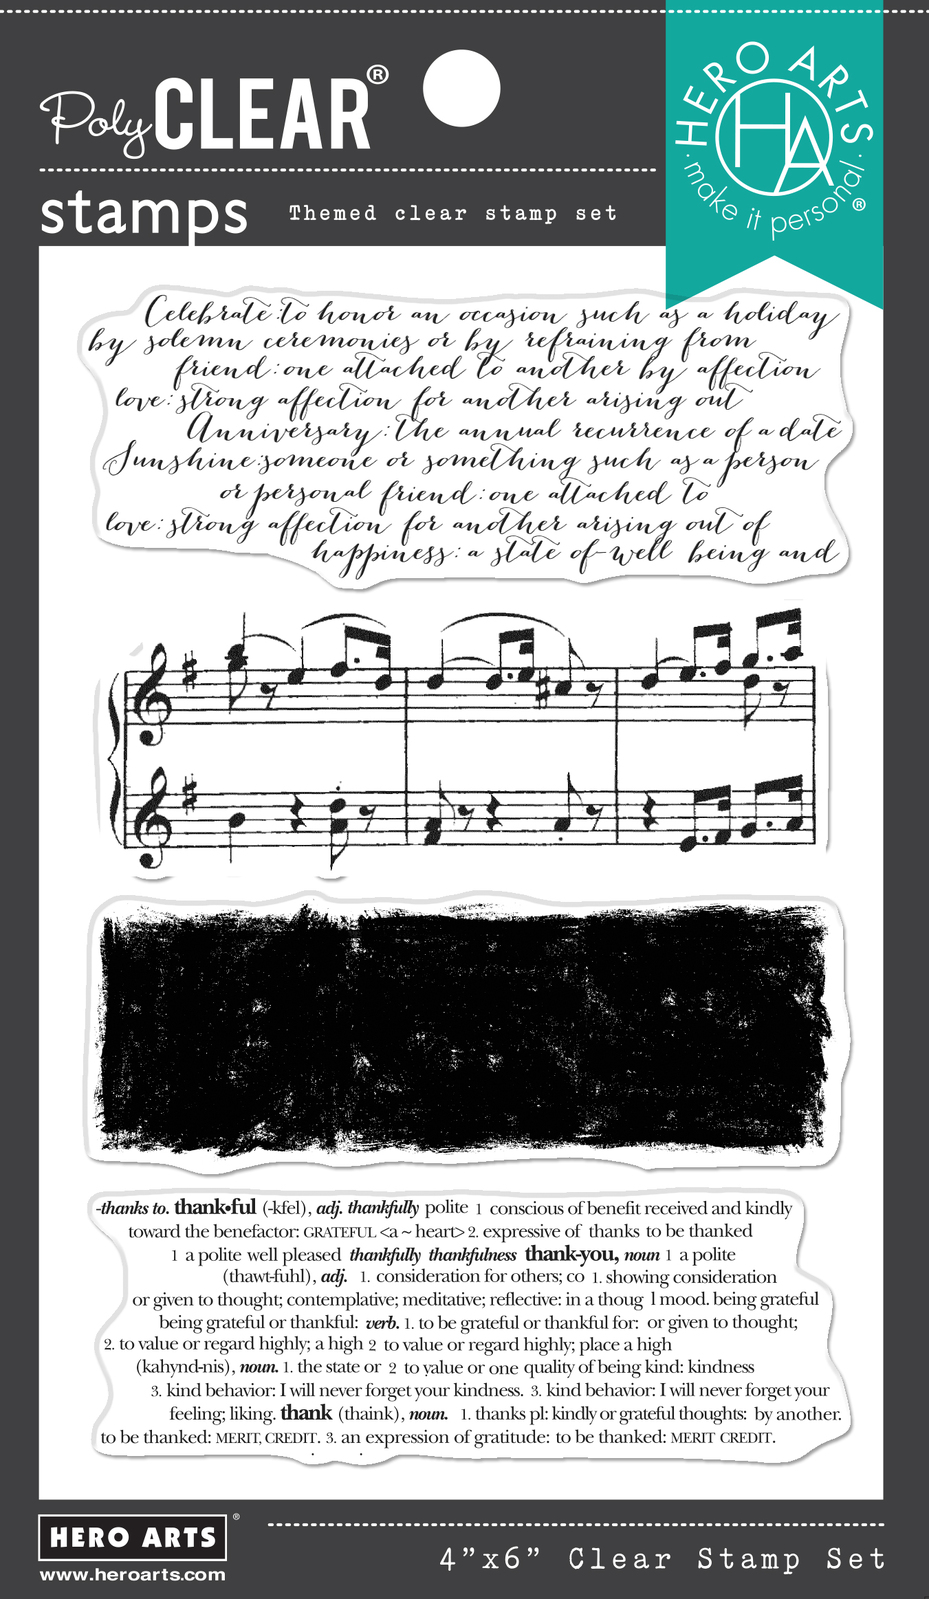 Poly CLEAR®
stamps Themed clear stamp set
HERO ARTS
HA
· make it personal · ®
Celebrate: to honor an occasion such as a holiday
by solemn ceremonies or by refraining from
friend: one attached to another by affection
love: strong affection for another arising out
Anniversary: the annual recurrence of a date
Sunshine: someone or something such as a person
or personal friend: one attached to
love: strong affection for another arising out of
happiness: a state of-well being and
-thanks to. thank•ful (-kfel), adj. thankfully polite 1 conscious of benefit received and kindly
toward the benefactor: GRATEFUL <a ~ heart> 2. expressive of thanks to be thanked
1 a polite well pleased thankfully thankfulness thank-you, noun 1 a polite
(thawt-fuhl), adj. 1. consideration for others; co 1. showing consideration
or given to thought; contemplative; meditative; reflective: in a thoug l mood. being grateful
being grateful or thankful: verb. 1. to be grateful or thankful for: or given to thought;
2. to value or regard highly; a high 2 to value or regard highly; place a high
(kahynd-nis), noun. 1. the state or 2 to value or one quality of being kind: kindness
3. kind behavior: I will never forget your kindness. 3. kind behavior: I will never forget your
feeling; liking. thank (thaink), noun. 1. thanks pl: kindly or grateful thoughts: by another.
to be thanked: MERIT, CREDIT. 3. an expression of gratitude: to be thanked: MERIT CREDIT.
HERO ARTS ®
www.heroarts.com
4”x6” Clear Stamp Set